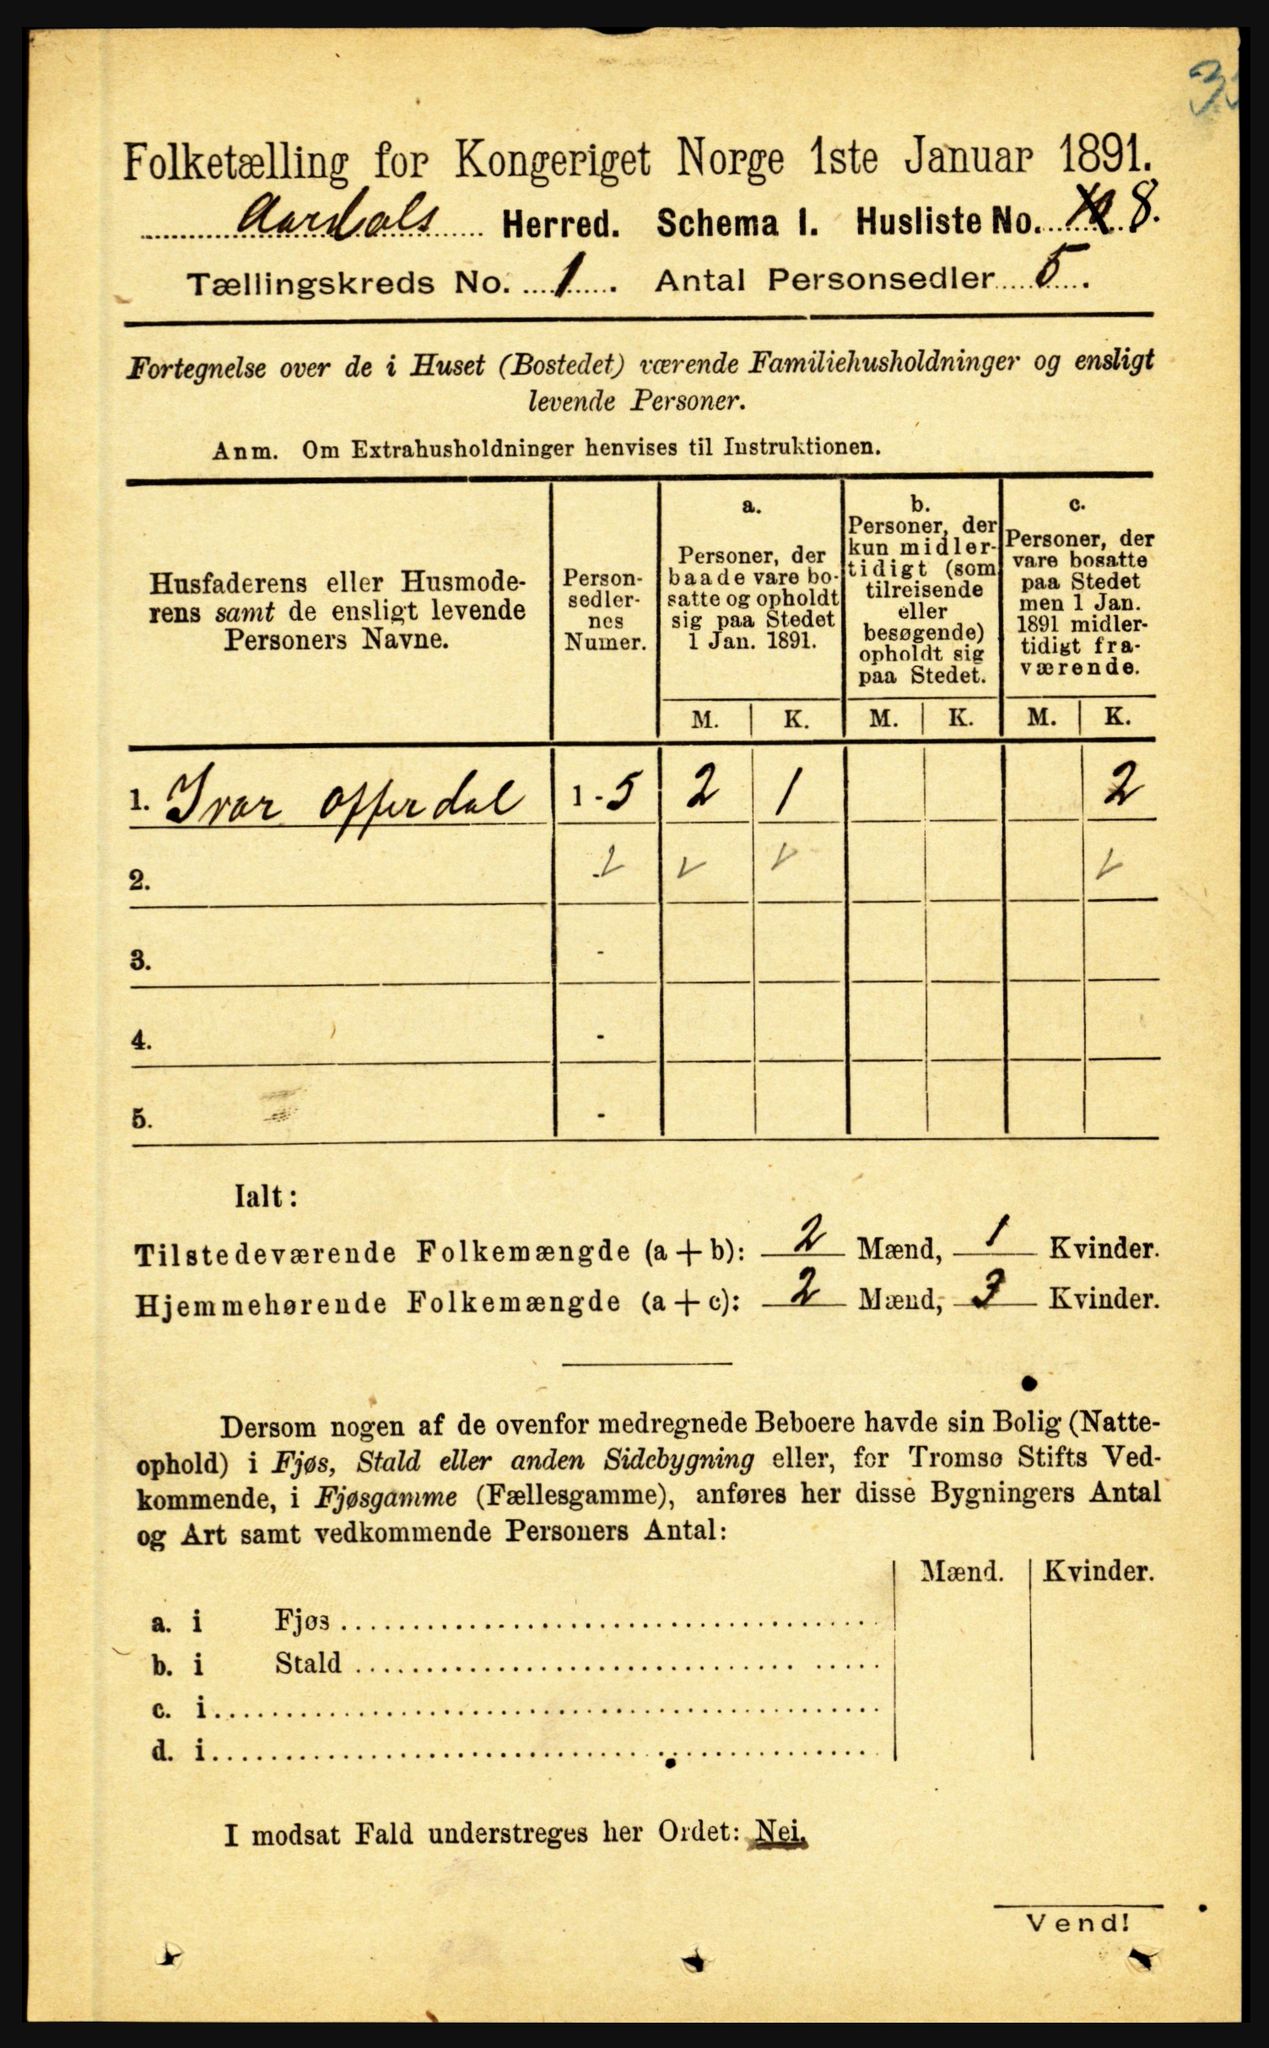 Folketælling for Kongeriget Norge 1ste Januar 1891.
Aardals Herred. Schema I. Husliste No. 8.
Tællingskreds No. 1. Antal Personsedler 5.
Fortegnelse over de i Huset (Bostedet) værende Familiehusholdninger og ensligt
levende Personer.
Anm. Om Extrahusholdninger henvises til Instruktionen.
Husfaderens eller Husmode-
rens samt de ensligt levende
Personers Navne.
Person-
sedler-
nes
Numer.
a.
Personer, der
baade vare bo-
satte og opholdt
sig paa Stedet
1 Jan. 1891.
b.
Personer, der
kun midler-
tidigt (som
tilreisende
eller
besøgende)
opholdt sig
paa Stedet.
c.
Personer, der
vare bosatte
paa Stedet
men 1 Jan.
1891 midler-
tidigt fra-
værende.
M. K. M. K. M. K.
1. Ivar Offerdal 1 - 5 2 1 2
2. -
3. -
4. -
5. -
Ialt:
Tilstedeværende Folkemængde (a + b): 2 Mænd, 1 Kvinder.
Hjemmehørende Folkemængde (a + c): 2 Mænd, 3 Kvinder.
Dersom nogen af de ovenfor medregnede Beboere havde sin Bolig (Natte-
ophold) i Fjøs, Stald eller anden Sidebygning eller, for Tromsø Stifts Ved-
kommende, i Fjøsgamme (Fællesgamme), anføres her disse Bygningers Antal
og Art samt vedkommende Personers Antal:
Mænd. Kvinder.
a. i Fjøs
b. i Stald
c. i
d. i
I modsat Fald understreges her Ordet: Nei.
Vend!